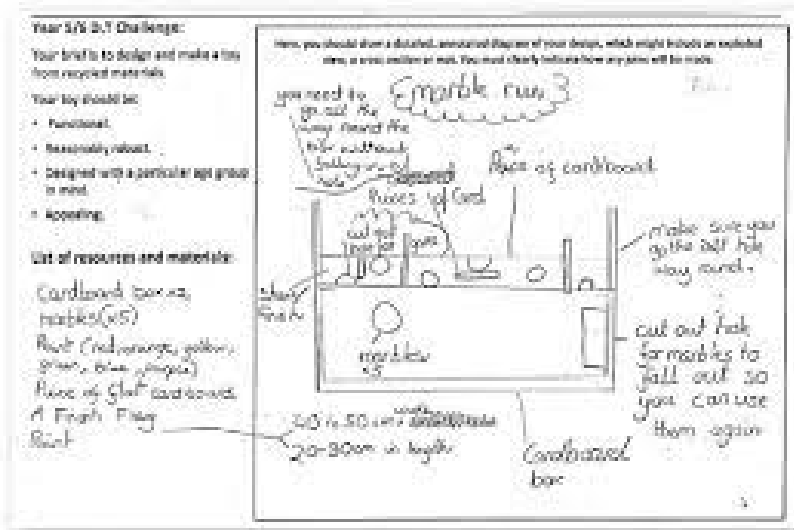 Year 5/6 D.T Challenge:
Your brief is to design and make a toy
from recycled materials.
Your toy should be:
• Functional.
• Reasonably robust.
• Designed with a particular age group
in mind.
• Appealing.
List of resources and materials:
Cardboard boxes,
marbles (x5)
Paint (red, orange, yellow,
blue,
Piece of flat cardboard
A Finish Flag
Paint
Here, you should draw a detailed, annotated diagram of your design, which might include an exploded
view, a cross section or net. You must clearly indicate how any joins will be made.
marble run
you need to
go all the
way round the
without
Piece of cardboard
Pieces of Card
cut out
make sure you
go the
way round.
Finish
marbles
x5
cut out hole
for marbles to
fall out so
you can use
them again
20-30cm in length
Cardboard
box